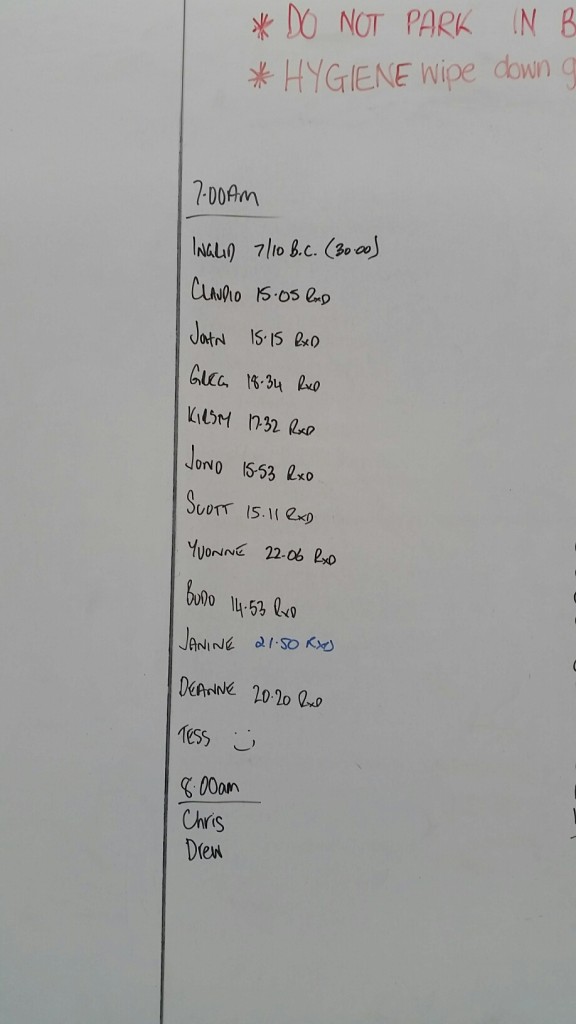 * DO NOT PARK IN B
* HYGIENE wipe down g
7.00AM
INGRID 7/10 B.C. (30.00)
CLAUDIO 15.05 RXD
JOHN 15.15 RXD
GREG 18.34 RXD
KIRSTY 17.32 RXD
JONO 15.53 RXD
SCOTT 15.11 RXD
YVONNE 22.06 RXD
BUDO 14.53 RXD
JANINE 21.50 RXD
DEANNE 20.20 RXD
TESS :)
8.00am
Chris
Drew